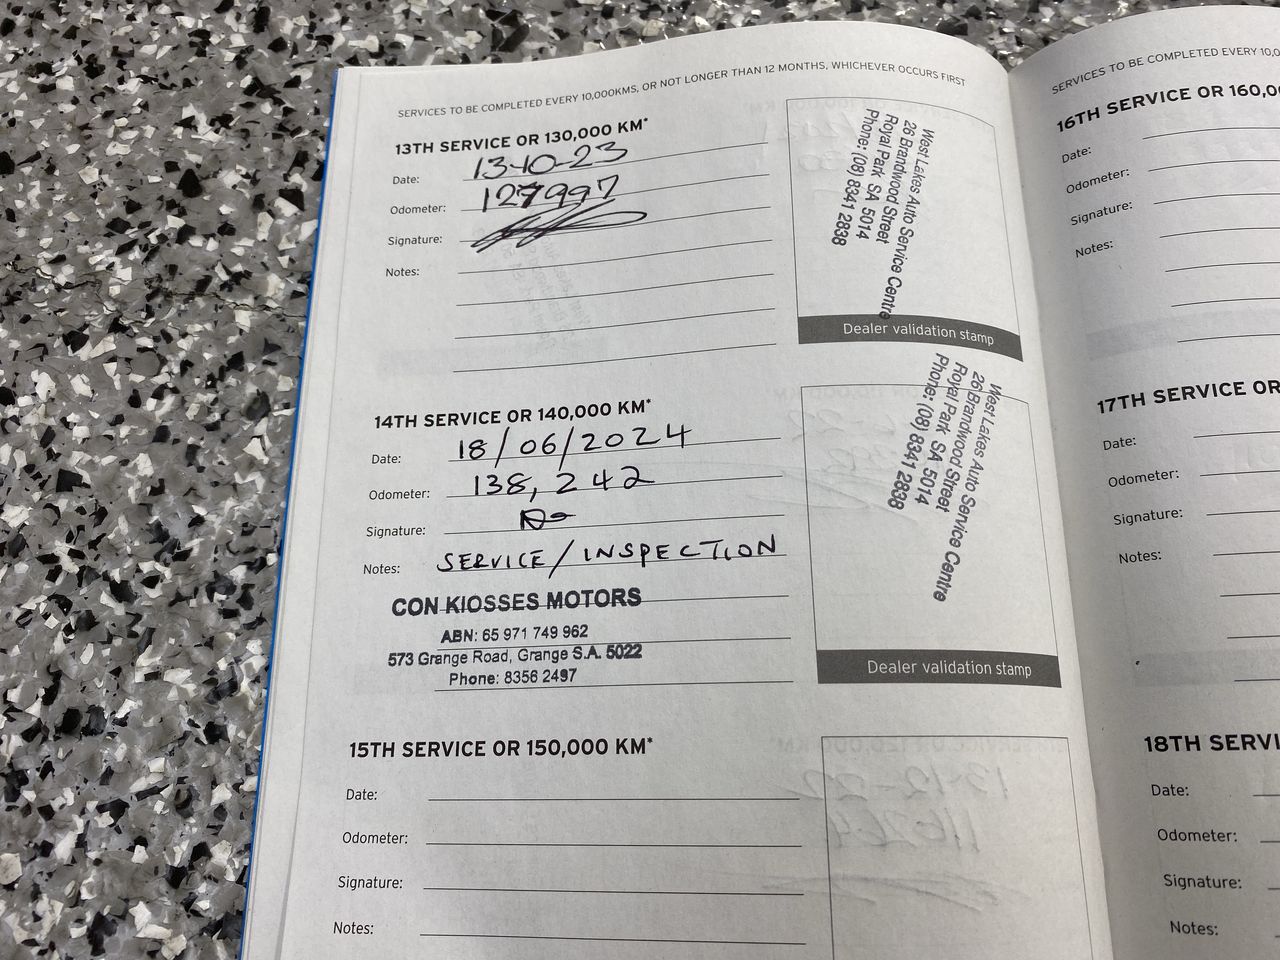 SERVICES TO BE COMPLETED EVERY 10,000KMS, OR NOT LONGER THAN 12 MONTHS, WHICHEVER OCCURS FIRST
13TH SERVICE OR 130,000 KM*
Date: 13-10-23
Odometer: 127997
Signature:
Notes:
West Lakes Auto Service Centre
26 Brandwood Street
Royal Park SA 5014
Phone: (08) 8341 2838
Dealer validation stamp
14TH SERVICE OR 140,000 KM*
Date: 18/06/2024
Odometer: 138,242
Signature:
Notes: SERVICE/INSPECTION
CON KIOSSES MOTORS
ABN: 65 971 749 962
573 Grange Road, Grange S.A. 5022
Phone: 8356 2497
West Lakes Auto Service Centre
26 Brandwood Street
Royal Park SA 5014
Phone: (08) 8341 2838
Dealer validation stamp
15TH SERVICE OR 150,000 KM*
Date:
Odometer:
Signature:
Notes:
SERVICES TO BE COMPLETED EVERY 10,0
16TH SERVICE OR 160,00
Date:
Odometer:
Signature:
Notes:
17TH SERVICE OR
Date:
Odometer:
Signature:
Notes:
18TH SERVI
Date:
Odometer:
Signature:
Notes: